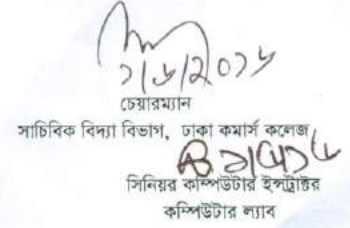 চেয়ারম্যান
সাচিবিক বিদ্যা বিভাগ, ঢাকা কমার্স কলেজ
সিনিয়র কম্পিউটার ইন্সট্রাক্টর
কম্পিউটার ল্যাব